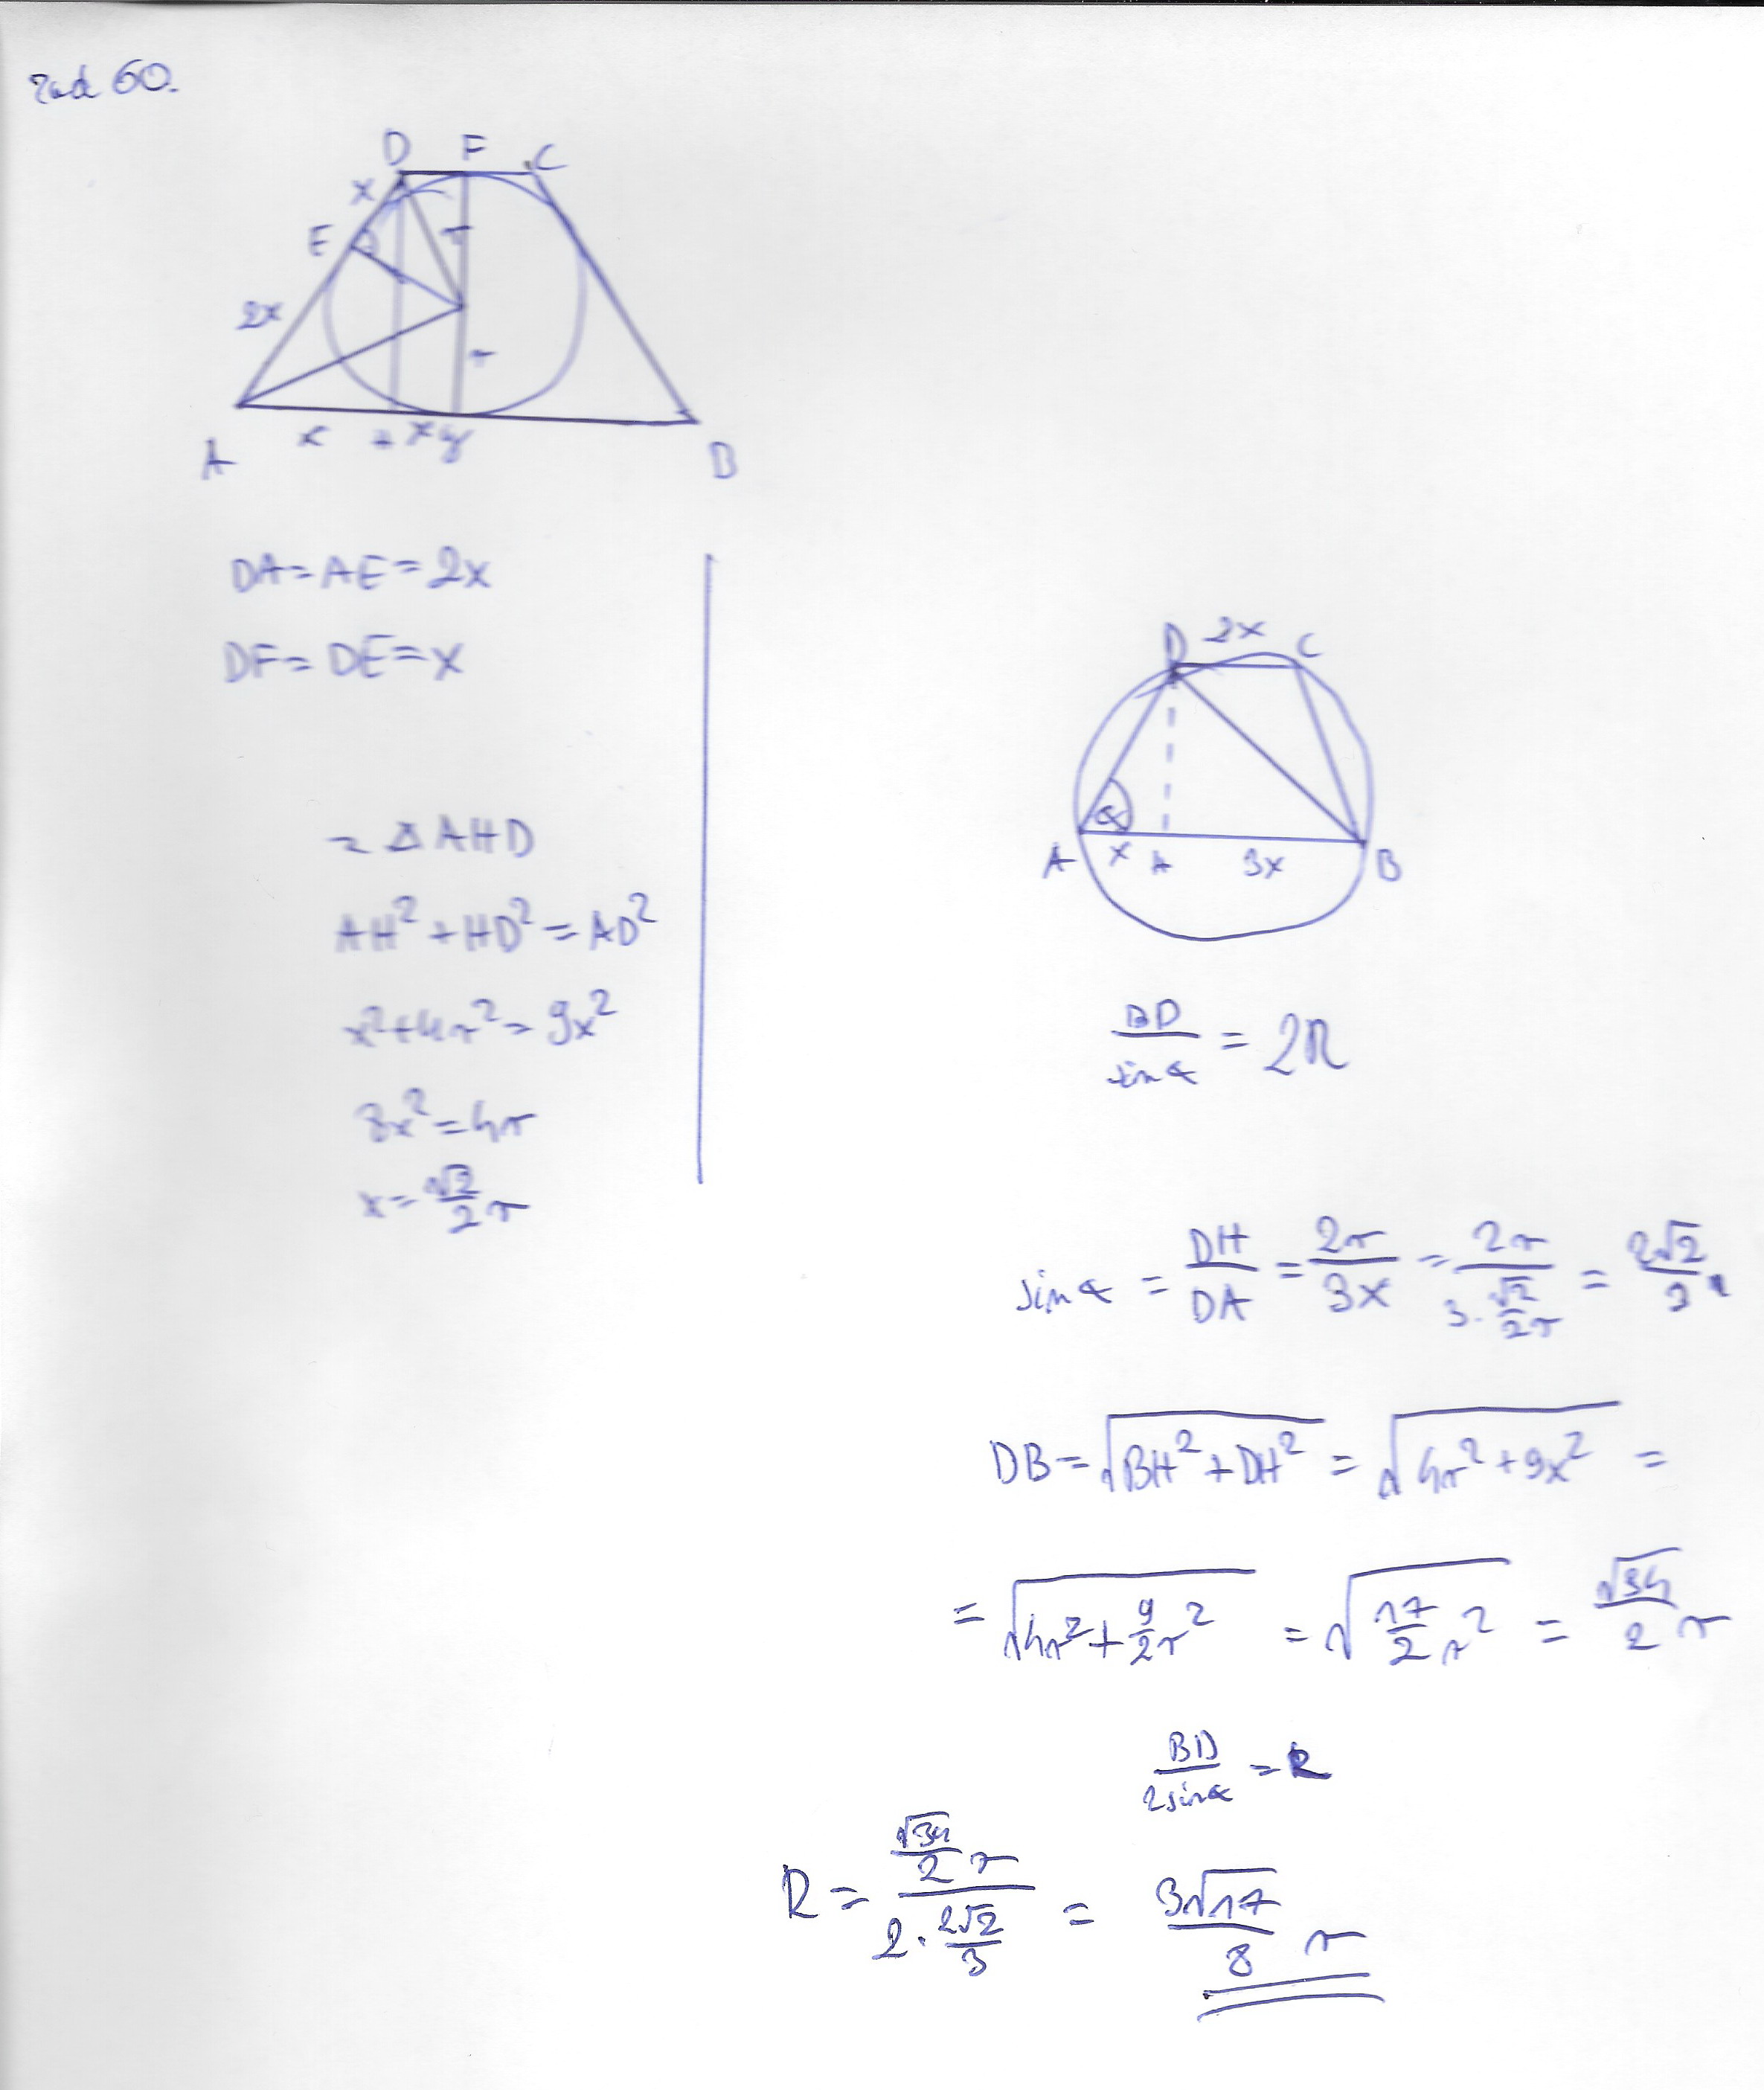 zad 60.
D F C
x
E r
2x
r
x + x y
A B
DA = AE = 2x
DF = DE = x
= Δ AHD
AH² + HD² = AD²
x² + 4r² = 9x²
8x² = 4r
x = √2/2 r
D 2x C
α
A x H 3x B
BD/sin α = 2R
sin α = DH/DA = 2r/3x = 2r/(3·√2/2 r) = 2√2/3
DB = √(BH² + DH²) = √(4r² + 9x²) =
= √(4r² + 9/2 r²) = √(17/2 r²) = √34/2 r
BD/2sin α = R
R = (√34/2 r)/(2·2√2/3) = 3√17/8 r